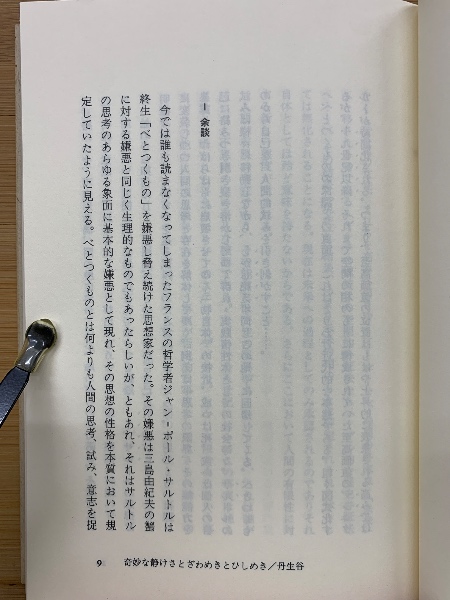 Ⅰ 余談
今では誰も読まなくなってしまったフランスの哲学者ジャン＝ポール・サルトルは
終生「べとつくもの」を嫌悪し脅え続けた思想家だった。その嫌悪は三島由紀夫の蟹
に対する嫌悪と同じく生理的なものでもあったらしいが、ともあれ、それはサルトル
の思考のあらゆる象面に基本的な嫌悪として現れ、その思想の性格を本質において規
定していたように見える。べとつくものとは何よりも人間の思考、試み、意志を捉
9 奇妙な静けさとざわめきとひしめき／丹生谷